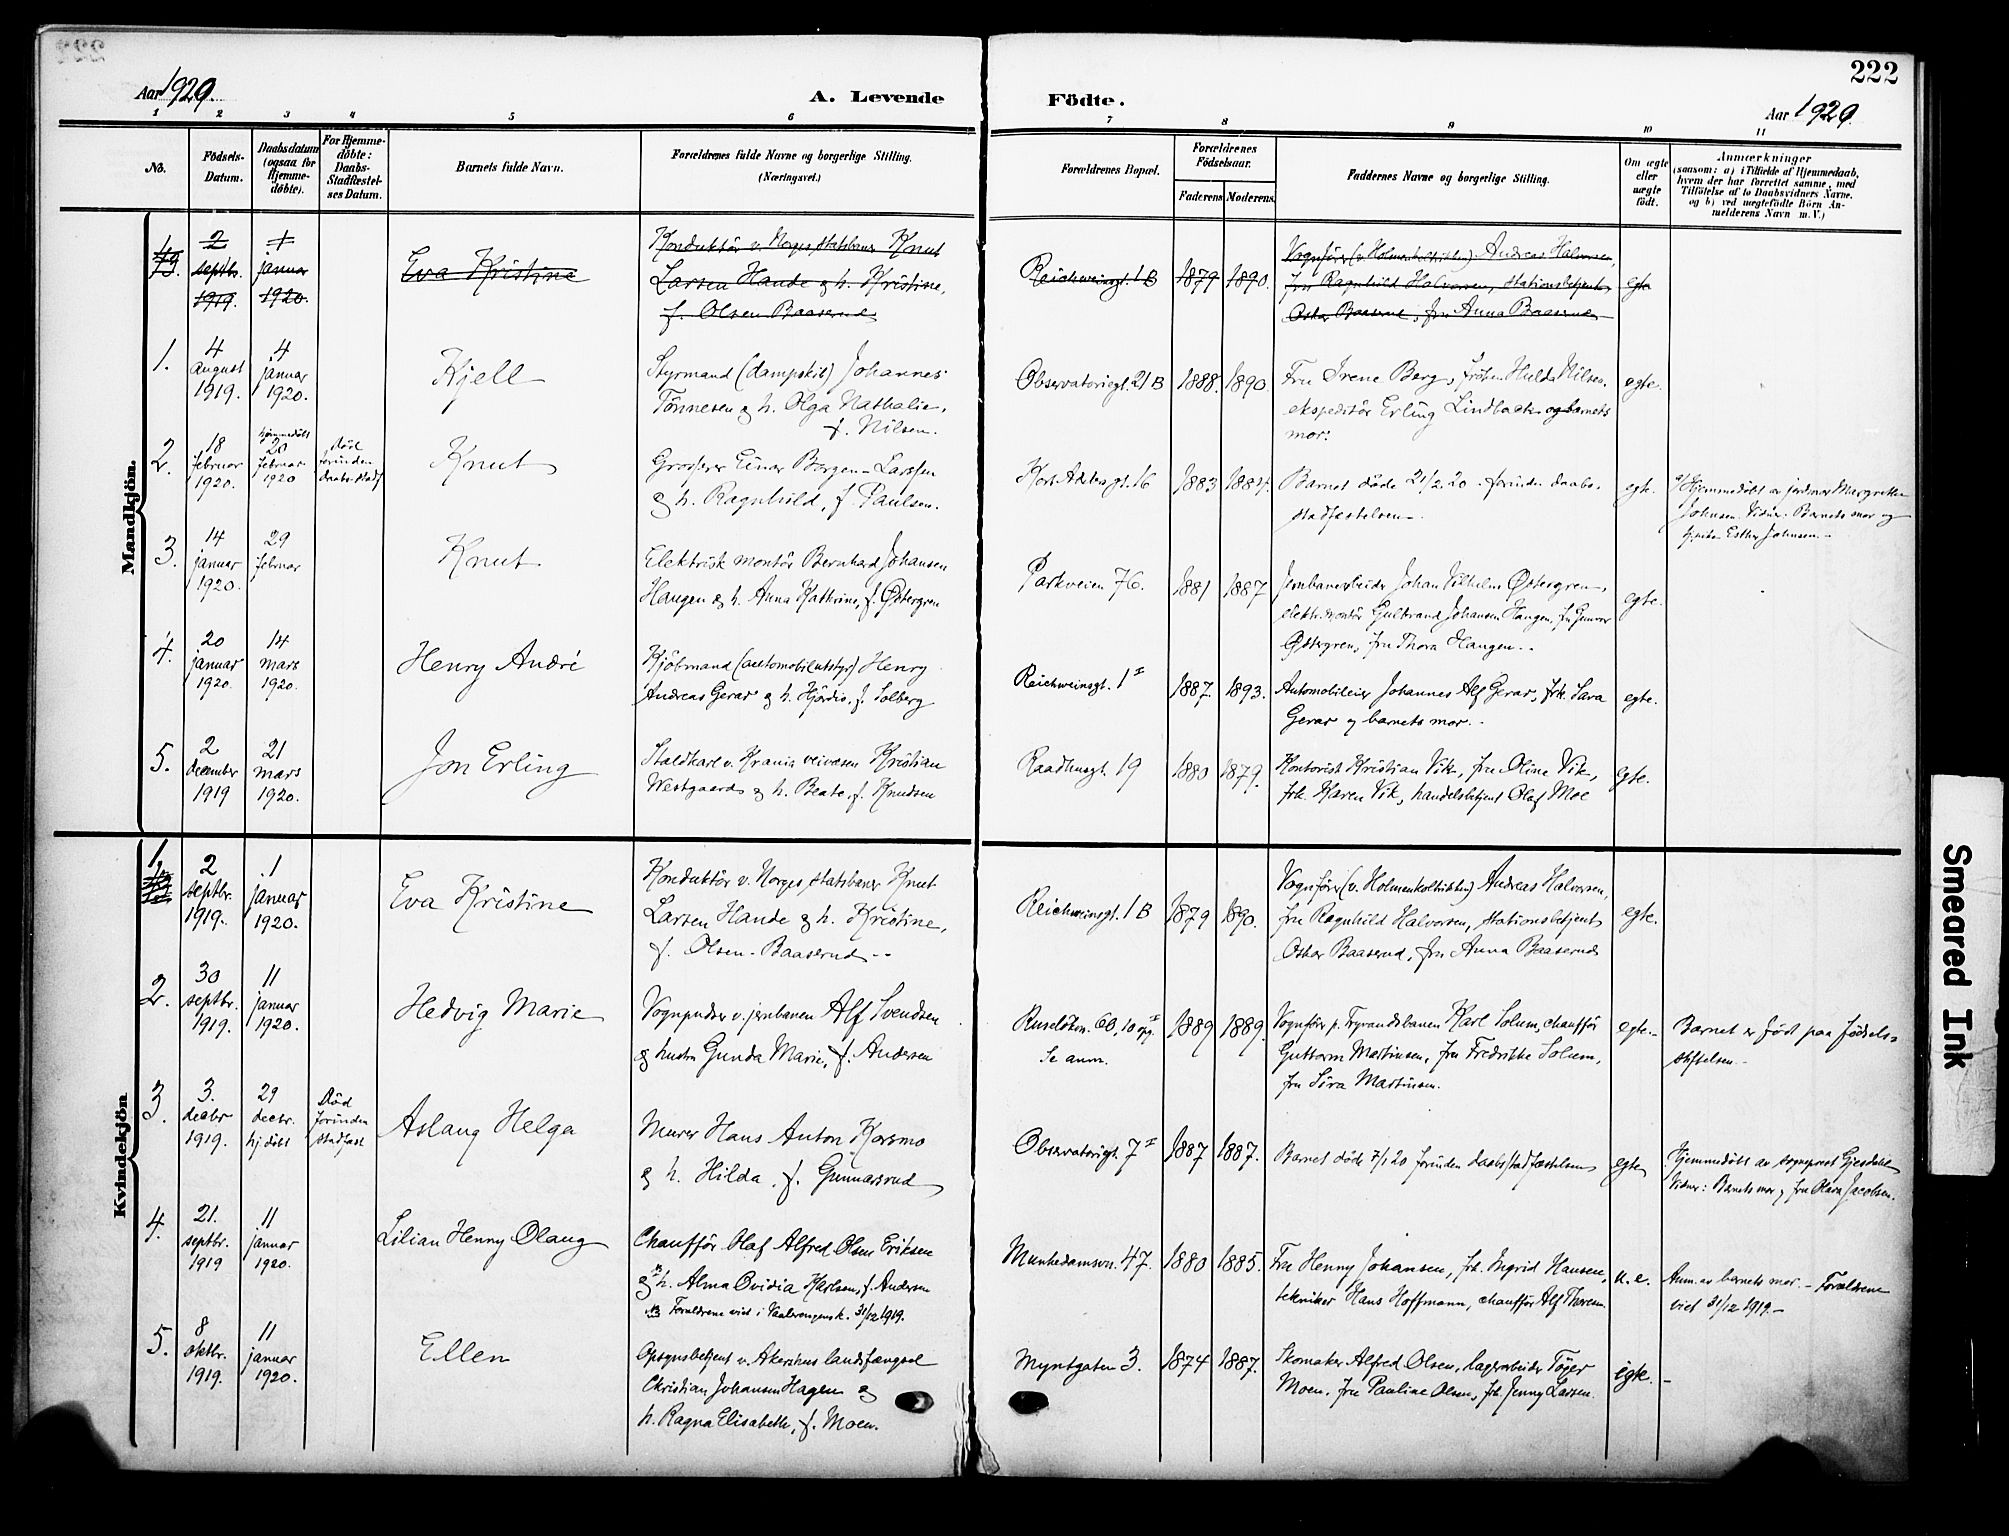 222
Aar 1920.
A. Levende
Födte.
Aar 1920.
1 2 3 4 5 6 7 8 9 10 11
No.
Födsels-
Datum.
Daabsdatum
(ogsaa for
Hjemme-
döbte).
For Hjemme-
döbte:
Daabs-
Stadfæstel-
ses Datum.
Barnets fulde Navn.
Forældrenes fulde Navne og borgerlige Stilling.
(Næringsvei.)
Forældrenes Bopæl.
Forældrenes
Födselsaar.
Faderens Moderens
Faddernes Navne og borgerlige Stilling.
Om ægte
eller
uægte
födt.
Anmærkninger
(saasom: a) i Tilfælde af Hjemmedaab,
hvem der har forrettet samme, med
Tilföielse af to Daabsvidners Navne.
og b) ved uægtefödte Börn An-
melderens Navn m. V.)
Mandkjön.
2
septbr.
1919.
1
januar
1920.
Eva Kristine
Konduktör v. Norges statsbaner Knut
Larsen Hande & h. Kristine,
f. Olsen Baaserud
Reichweinsgt. 1 B
1879
1890.
Vognförer (v. Holmenkolbanen) Andreas Halvorsen,
fru Ragnhild Halvorsen, stationsbetjent
Oskar Baaserud, fru Anna Baaserud
egte
1.
4
august
1919.
4
januar
1920.
Kjell
Styrmand (dampskib) Johannes
Tönnesen & h. Olga Nathalie,
f. Nilsen.
Observatoriegt. 21 B
1888.
1890.
Fru Irene Berg, fröken Hulda Nilsen,
ekspeditör Erling Lindbæk og barnets
mor.
egte.
2.
18
februar
1920.
hjemmedöbt
20
februar
1920
Död
forinden
daabs-stadf
Knut
Grosserer Einar Borgen-Larssen
& h. Ragnhild, f. Paulsen.
16
1883
1884.
Barnet döde 21/2 20 - forinden daabs-
stadfæstelsen.
egte.
a/ Hjemmedöbt av jordmor Margrethe
Johnsen. Vidner: Barnets mor og
Esther Johnsen.
3.
14
januar
1920.
29
februar
Knut
Elektrisk montör Bernhard Johansen
Haugen & h. Anna Kathrine, f. Østergren
Parkveien 76.
1881
1887
Jernbanearbeider Johan Vilhelm Østergren,
elektr. montör Gulbrand Johansen Haugen, fru Gunvor
Østergren, fru Thora Haugen.
egte.
4.
20
januar
1920.
14
mars
1920.
Henry André
Kjöbmand (automobilutstyr) Henry
Andreas Gerar & h. Hjördis, f. Solberg
Reichweinsgt. 1 I
1887.
1893.
Automobileier Johannes Alf Gerar, frk. Sara
Gerar og barnets mor.
egte.
5.
2
december
1919
21
mars
1920.
Jon Erling
Staldkarl v. Kra. veivæsen Kristian
Westgaard & h. Beate, f. Knudsen
Raadhusgt. 19
1880
1879.
Kontorist Kristian Vik, fru Oline Vik,
frk. Karen Vik, handelsbetjent Olaf Moe
egte.
Kvindekjön
1.
2
septbr.
1919.
1
januar
1920.
Eva Kristine
Konduktör v. Norges statsbaner Knut
Larsen Hande & h. Kristine,
f. Olsen-Baaserud
Reichweinsgt. 1 B
1879
1890.
Vognförer (v. Holmenkolbanen) Andreas Halvorsen,
fru Ragnhild Halvorsen, stationsbetjent
Oskar Baaserud, fru Anna Baaserud
egte.
2.
30
septbr.
1919.
11
januar
1920.
Hedvig Marie
Vognpudser v. jernbanen Alf Svendsen
& hustru Gunda Marie, f. Andersen
Ruselökv. 60, 10 opg. I
Se anm.
1889
1889.
Vognförer p. Tryvandsbanen Karl Solum, chaufför
Guttorm Martinsen, fru Fredrikke Solum,
fru Sira Martinsen.
egte.
Barnet er född paa Födsels-
stiftelsen.
3.
3.
decbr
1919.
29
decbr.
hj döbt
Död
forinden
stadfæst
Aslaug Helga
Murer Hans Anton Korsmo
& h. Hilda, f. Gunnarsrud
Observatoriegt. 7 I
1887
1887.
Barnet döde 7/1 20 forinden daabsstadfæstelsen
egte
Hjemmedöbt av sogneprest Gjesdahl
Vidner: Barnets mor og fru Klara Jacobsen.
4.
21.
septbr.
1919
11
januar
1920.
Lilian Henny Olaug
Chaufför Olaf Alfred Olsen Eriksen
& h. Alma Ovidia Karlsen, f. Andersen
Forældrene viet i Vaalerengens k. 31/12 1919.
Munkedamsvn. 47.
1880
1885.
Fru Henny Johansen, frk. Ingrid Hansen,
tekniker Hans Hoffmann, chaufför Alf Thoresen.
u. e.
Anm. av barnets mor. - Forældrene
viet 31/12 1919.
5.
8
oktbr.
1919.
11
januar
1920.
Ellen
Opsynsbetjent v. Akershus landsfængsel
Christian Johansen Hagen &
h. Ragna Elisabeth, f. Moen.
Myntgaten 3.
1874
1887.
Skomaker Alfred Olsen, lagerarbeider Töger
Moen, fru Pauline Olsen, frk. Jenny Larsen.
egte.
Smeared Ink